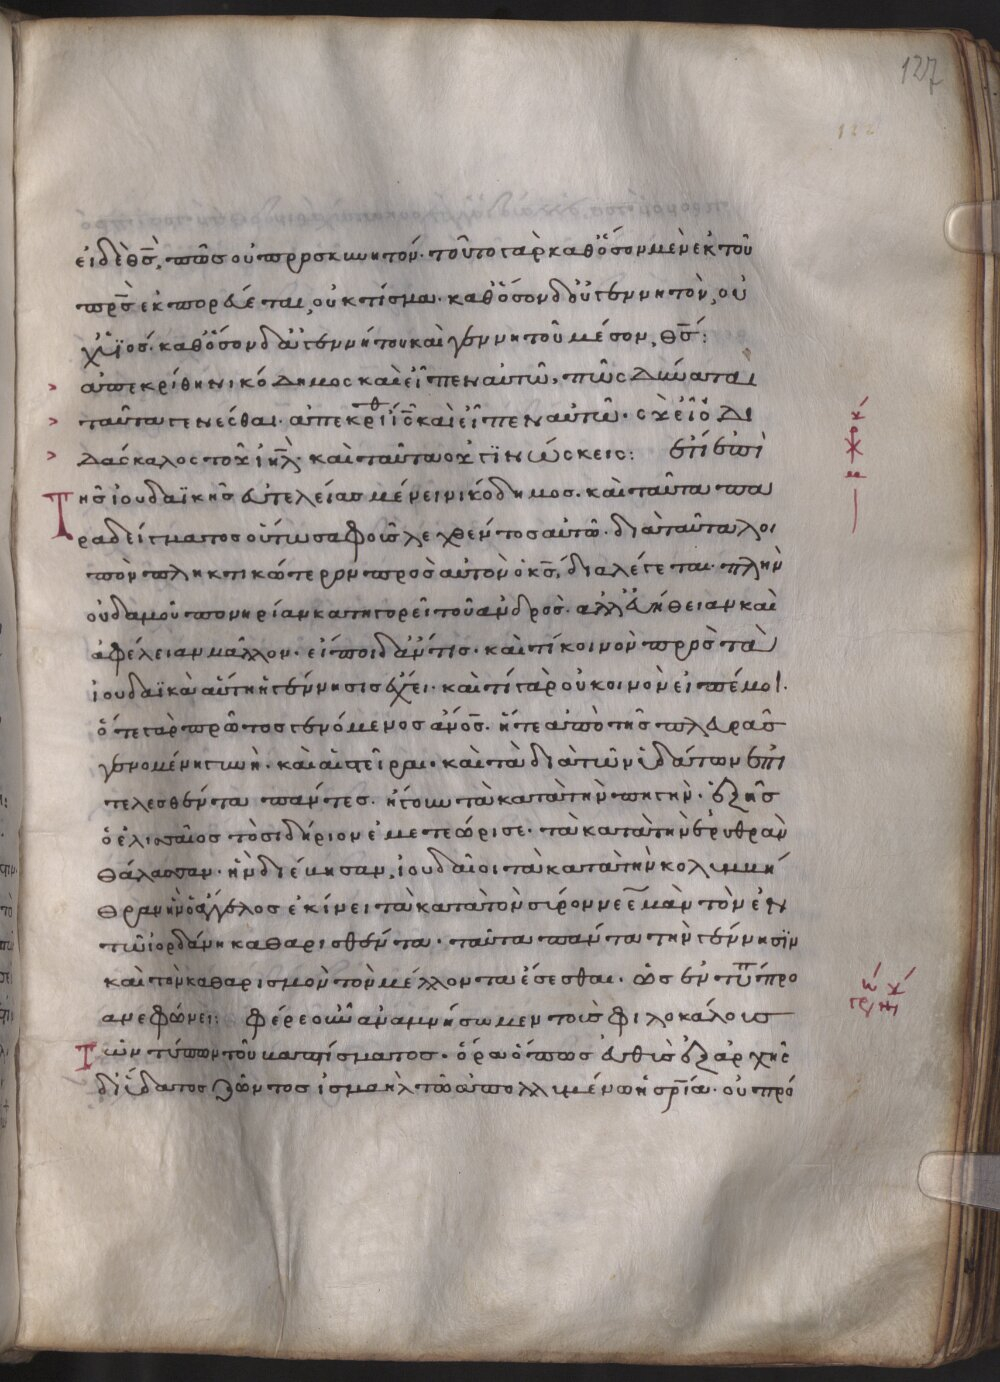 127
122
εἰ δὲ θς̅, πῶς οὐ προσκυνητόν· τοῦτο γὰρ καθ' ὅσον μὲν ἐκ τοῦ
πρς̅ ἐκπορεύεται, οὐ κτίσμα· καθ' ὅσον δ' οὐ γεννητὸν, οὐ
χ' υἱός· καθ' ὅσον δ' ἀγεννήτου καὶ γεννητοῦ μέσον, θς̅:
ἀπεκρίθη νικόδημος καὶ εἶπεν αὐτῶ, πῶς δύναται
ταῦτα γενέσθαι· ἀπεκρίθ ις̅ καὶ εἶπεν αὐτῶ· σὺ εἶ ὁ δι
δάσκαλος τοῦ ιη̅λ· καὶ ταῦτα οὐ γϊνώσκεις: ἔτι ἐπὶ
Τῆς ἰουδαϊκῆς εὐτελείας μένει νικόδημος· καὶ ταῦτα πα
ραδείγματος οὕτω σαφοῦς λεχθέντος αὐτῶ· διὰ ταῦτα λοι
πὸν πληκτικώτερον πρὸς αὐτὸν ὁ κς̅, διαλέγεται· πλὴν
οὐδαμοῦ πονηρίαν κατηγορεῖ τοῦ ἀνδρός· ἀλλ' εὐήθειαν καὶ
ἀφέλειαν μᾶλλον· εἴποι δ' ἄν τις· καὶ τί κοινὸν πρὸς τὰ
ἰουδαϊκὰ αὕτη ἡ γέννησις ἔχει· καὶ τί γὰρ οὐ κοινὸν εἰπέ μοι·
ὅ τε γὰρ πρῶτος γενόμενος ἄνος̅· ἥ τε ἀπὸ τῆς πλευρᾶς
γενομένη γυνή· καὶ αἱ στεῖραι· καὶ τὰ διὰ τῶν ὑδάτων ἐπι
τελεσθέντα πάντες· ἤγουν τὰ κατὰ τὴν πηγὴν· ἐξ ἧς
ὁ ἐλισσαῖος τὸ σιδήριον ἐμετεώρισε· τὰ κατὰ τὴν ἐρυθρὰν
θάλασσαν· ἣν διέβησαν, ἰουδαῖοι τὰ κατὰ τὴν κολυμβή
θραν ἣν ὁ ἄγγελος ἐκίνει τὰ κατὰ τὸν σύρον νεεμὰν τὸν ἐν
τῶ ἰορδάνη καθαρισθέντα· ταῦτα πάντα τὴν γέννησϊν
καὶ τὸν καθαρισμὸν τὸν μέλλοντα ἔσεσθαι· ὡς ἐν τύπ προ
ανεφώνει: φέρε οὖν ἀναμνήσωμεν τοῖς φιλοκάλοις
τῶν τύπων τοῦ βαπτίσματος· ὅρα ὅπως εὐθὺς ἐξ ἀρχῆς
δι' ὕδατος ζῶντος ἰσμαὴλ τῶ ἀπολλυμένω ἡ σρΐα· οὐ πρό